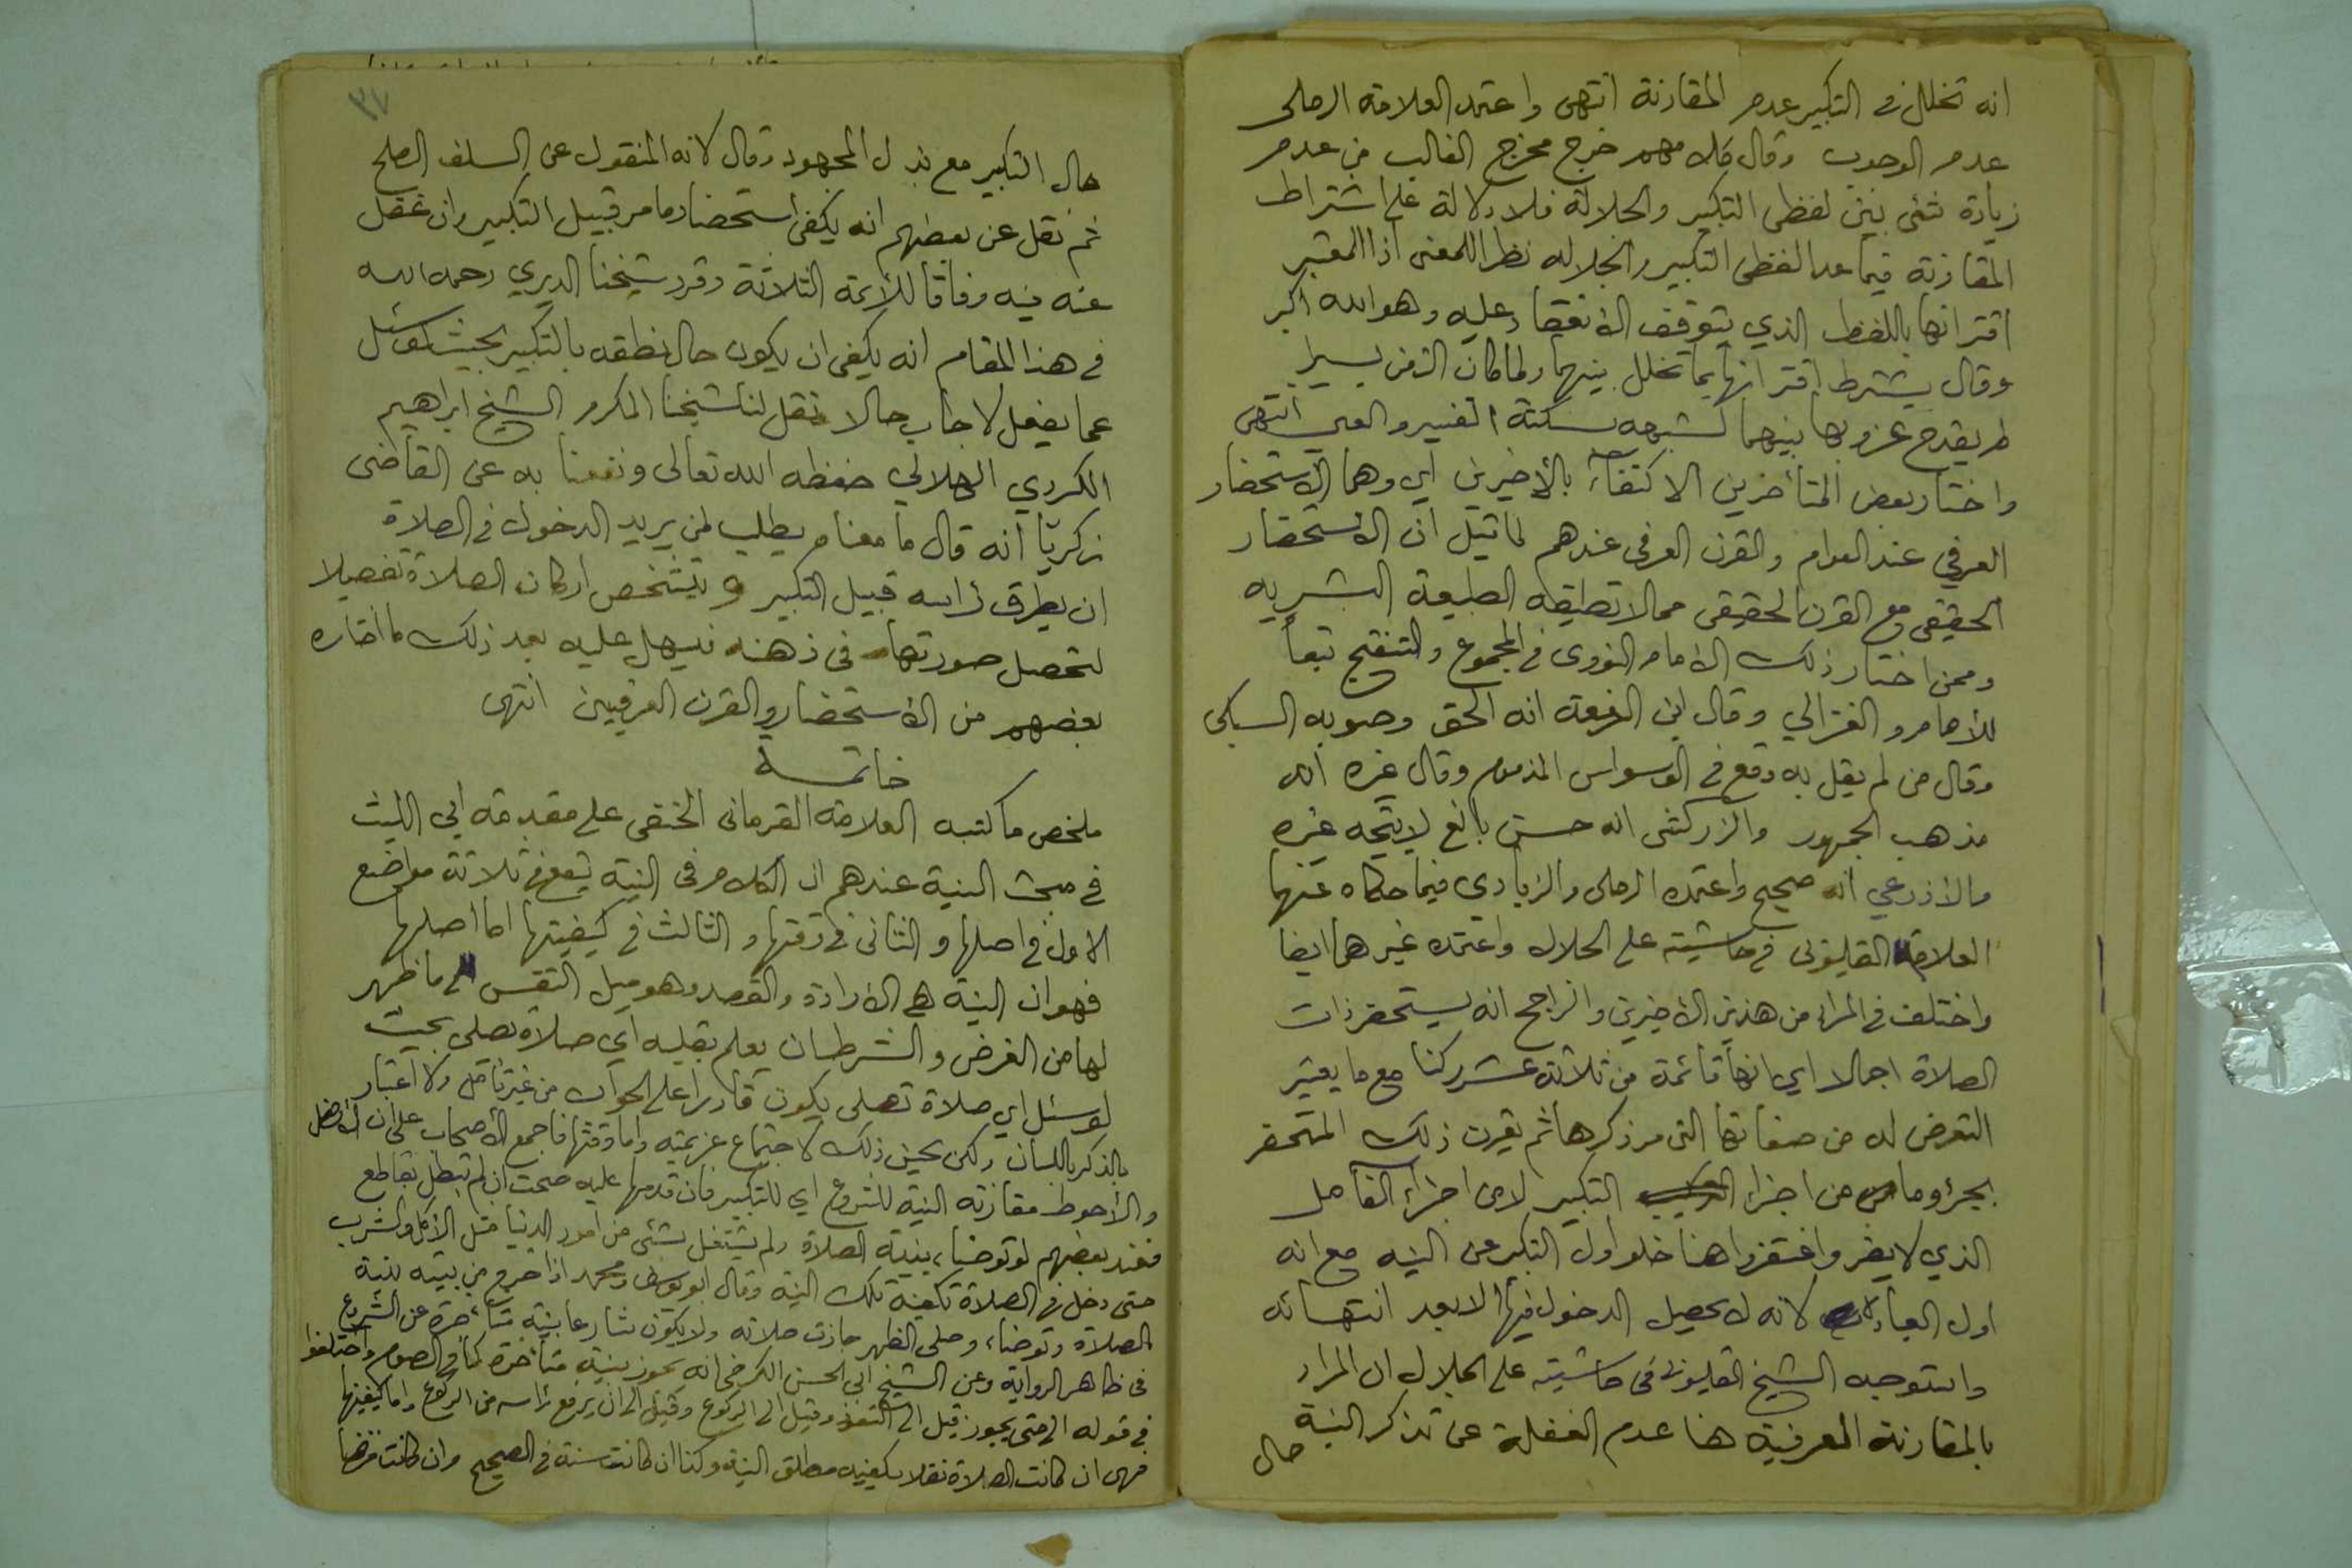 انه تخلل في التكبير عدم المقارنة انتهى واعتمد العلامة الرملى
عدم الوجوب وقال كلامهم خرج مخرج الغالب من عدم
زيادة شئ بين لفظى التكبير والجلالة فلا دلالة على اشتراط
المقارنة فيما عدا لفظى التكبير والجلاله نظرا للمعنى اذا المعتبر
اقترانها باللفظ الذي يتوقف الانعقاد عليه وهو الله اكبر
وقال يشترط اقترانها بما تخلل بينهما ولما كان الزمن يسيرا
لم يقدح عزوبها بينهما لشبهه بسكتة التنفس والعي انتهى
واختار بعض المتأخرين الاكتفاء بالأخيرين اي وهما الاستحضار
العرفي عند العوام والقرن العرفى عندهم لما قيل ان الاستحضار
الحقيقى مع القرن الحقيقى مما لا تطيقه الطبيعة البشريه
وممن اختار ذلك الامام النووى في المجموع والتنقيح تبعا
للأمام والغزالي وقال ابن الرفعة انه الحق وصوبه السبكى
وقال من لم يقل به وقع في الوسواس المذموم وقال غيره انه
مذهب الجمهور والزركشى انه حسن بالغ لا يتجه غيره
والاذرعي انه صحيح واعتمده الرملى والزيادى فيما حكاه عنهما
العلامة القليوبى في حاشيته على الجلال واعتمده غيرهما ايضا
واختلف في المراد من هذين الأخيرين والراجح انه يستحضر ذات
الصلاة اجمالا اي انها قائمة من ثلاثة عشر ركنا مع ما يعتبر
التعرض له من صفاتها التى مر ذكرها ثم يقرن ذلك المستحضر
بجزء وما من اجزاء التكبير لا من اجزاء الفاصل
الذي لا يضر واغتفروا هنا خلو اول التكبير عن النيه مع انه
اول العبادة لانه لا يحصل الدخول فيها الا بعد انتهائه
واستوجبه الشيخ القليوبى فى حاشيته على الجلال ان المراد
بالمقارنة العرفية هنا عدم الغفلة عن تذكر النية
حال
٣٧
حال التكبير مع بذل المجهود وقال لانه المنقول عن السلف الصلح
ثم نقل عن بعضهم انه يكفى استحضار ما مر قبيل التكبير وان غفل
عنه فيه وفاقا للأيمة الثلاثة وقرر شيخنا الديري رحمه الله
في هذا المقام انه يكفى ان يكون حال نطقه بالتكبير بحيث لو سئل
عما يفعل لاجاب حالا ونقل لنا شيخنا المكرم الشيخ ابراهيم
الكردي الهلالي حفظه الله تعالى ونفعنا به عن القاضى
زكريا انه قال ما معناه يطلب لمن يريد الدخول في الصلاة
ان يطرق رأسه قبيل التكبير ويتشخص اركان الصلاة تفصيلا
لتحصل صورتها فى ذهنه فيسهل عليه بعد ذلك ما اختاره
بعضهم من الاستحضار والقرن العرفيين انتهى
خاتمة
ملخص ما كتبه العلامة القرمانى الحنفى على مقدمة ابي الليث
في مبحث النية عندهم ان الكلام فى النية يقع في ثلاثة مواضع
الاول في اصلها والثانى في وقتها والثالث في كيفيتها اما اصلها
فهو ان النية هي الارادة والقصد وهو ميل النفس الى ما ظهر
لها من الغرض والشرط ان يعلم بقلبه اي صلاة يصلى بحيث
لو سئل اي صلاة تصلى يكون قادرا على الجواب من غير تأمل ولا اعتبار
بالذكر باللسان ولكن يحسن ذلك لاجتماع عزيمته واما وقتها فاجمع الأصحاب على ان الافضل
والأحوط مقارنة النية للشروع اي للتكبير فان قدمها عليه صحت ان لم تبطل بقاطع
فعند بعضهم لو توضاء بنية الصلاة ولم يشتغل بشئ من امور الدنيا مثل الاكل والشرب
حتى دخل في الصلاة تكفيه تلك النية وقال ابو يوسف ومحمد اذا خرج من بيته بنية
الصلاة وتوضاء وصلى الظهر جازت صلاته ولا يكون شارعا بنية متأخرة عن الشروع
فى ظاهر الرواية وعن الشيخ ابي الحسن الكرخى انه يجوز بنية متأخرة كما في الصوم واختلفوا
في قوله الى متى يجوز قيل الى التعوذ وقيل الى الركوع وقيل الى ان يرفع رأسه من الركوع واما كيفيتها
فهى ان كانت الصلاة نفلا يكفيه مطلق النية وكذا ان كانت سنة في الصحيح وان كانت فرضا